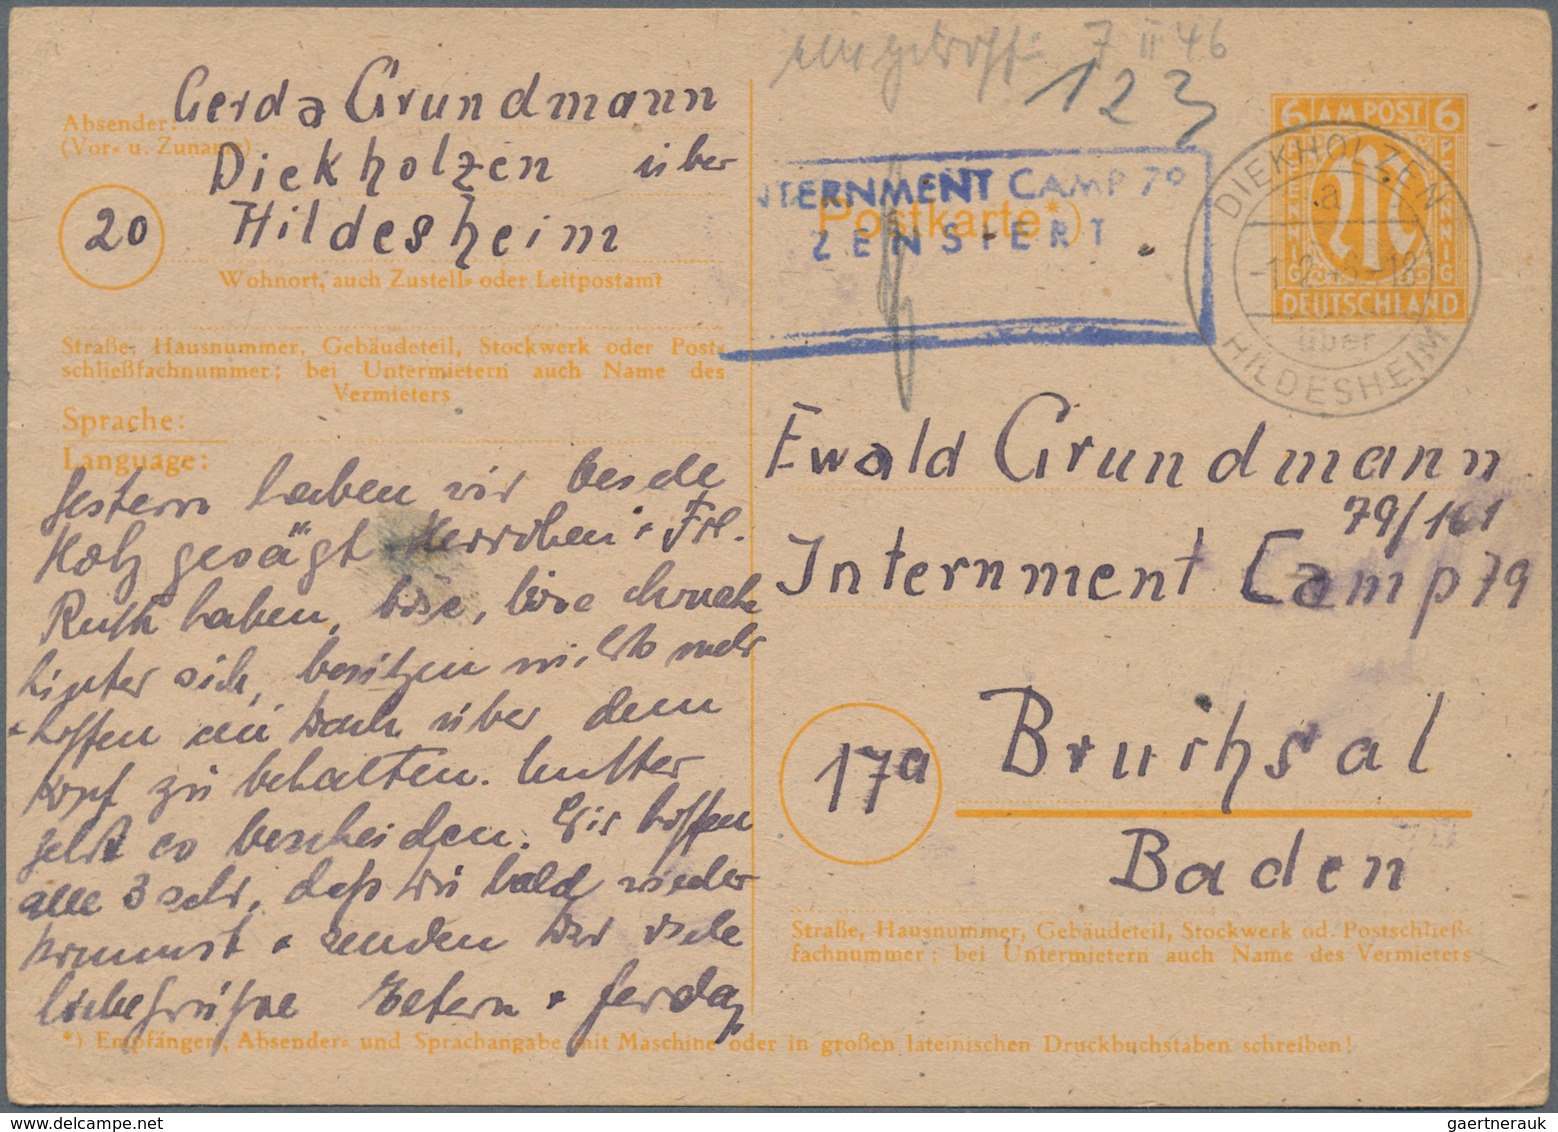 eingetroff. 7 II 46
123
Gerda Grundmann
Absender:
(Vor- u. Zuname)
Diekholzen über
20 Hildesheim
Wohnort, auch Zustell- oder Leitpostamt
Straße, Hausnummer, Gebäudeteil, Stockwerk oder Post-
schließfachnummer; bei Untermietern auch Name des
Vermieters
Sprache:
Language:
gestern haben wir beide
Holz gesägt Herrchen + Frl.
Ruth haben, böse, böse
hinter sich, besitzen nichts mehr
+ hoffen ein Dach über dem
Kopf zu behalten. Mutter
geht es bescheiden. Wir hoffen
alle 3 sehr, daß Du bald wieder
kommst + senden Dir viele
liebe Grüße Eltern + Gerda
NTERNMENT CAMP 79
Postkarte*)
ZENSIERT
6 AM POST 6
PFENNIG PFENNIG
DEUTSCHLAND
DIEKHOLZEN
a
-18
über
HILDESHEIM
Ewald Grundmann
79/161
Internment Camp 79
17a Bruchsal
Baden
Straße, Hausnummer, Gebäudeteil, Stockwerk od. Postschließ-
fachnummer; bei Untermietern auch Name des Vermieters
*) Empfänger-, Absender- und Sprachangabe mit Maschine oder in großen lateinischen Druckbuchstaben schreiben!
gaertnerauk@delcampe.net